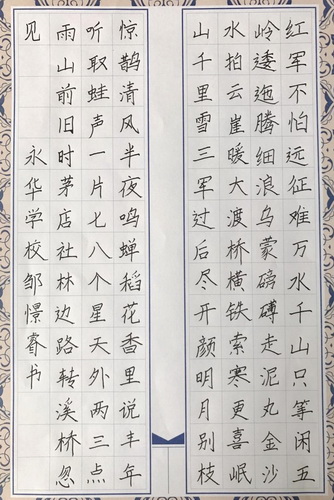 红军不怕远征难万水千山只等闲五
岭逶迤腾细浪乌蒙磅礴走泥丸金沙
水拍云崖暖大渡桥横铁索寒更喜岷
山千里雪三军过后尽开颜明月别枝
惊鹊清风半夜鸣蝉稻花香里说丰年
听取蛙声一片七八个星天外两三点
雨山前旧时茅店社林边路转溪桥忽
见 永华学校邹憬睿书